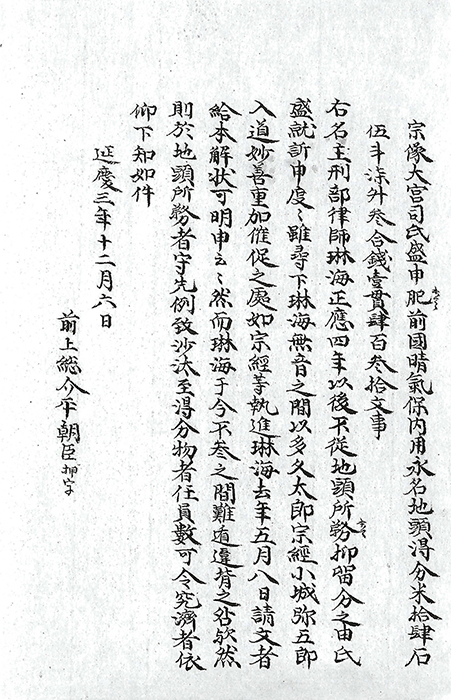 宗像大宮司氏盛申肥前國晴氣保内用永名地頭得分米拾肆石
伍斗柒升叄合錢壹貫肆百叄拾文事
右名主刑部律師琳海正應四年以後不従地頭所務抑留分之由氏
盛就訴申度〻雖尋下琳海無音之間以多久太郎宗經小城弥五郎
入道妙善重加催促之處如宗經等執進琳海去年五月八日請文者
給本解状可明申云〻然而琳海于今不叄之間難遁違背之咎歟然
則於地頭所務者守先例致沙汰至得分物者任員數可令究濟者依
仰下知如件
延慶三年十二月六日
前上総介平朝臣 押字